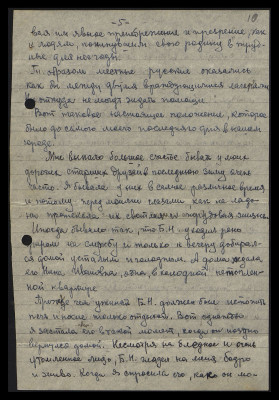 -5-
10
вая им явное пренебрежение и презрение, как
к людям, покинувшим свою родину в труд-
ные для нее годы.
Т. образом местные русские оказались
как бы между двумя враждующими лагерями
и откуда не могут ждать помощи.
Вот таково настоящее положение, которое
было до самого моего последнего дня в нашем
городе.
Мне выпало большое счастье бывать у моих
дорогих, старших друзей в последнюю зиму очень
часто. Я бывала у них в самое различное время
и потому перед моими глазами, как на ладо-
ни протекала их
Иногда бывало так, что Б.Н. уходил рано
утром на службу и только к вечеру добирал-
ся домой усталый и голодный. А дома ждала
его Нина Ивановна, одна, в холодной нетоплен-
ной квартире.
Прежде чем ужинать Б.Н. должен был истопить
печь и после только отдыхать. Вот однажды
я застала его в такой момент, когда он поздно
вернулся домой. Несмотря на бледное и очень
утомленное лицо, Б.Н. глядел на меня бодро
и живо. Когда я спросила его, как он мо-